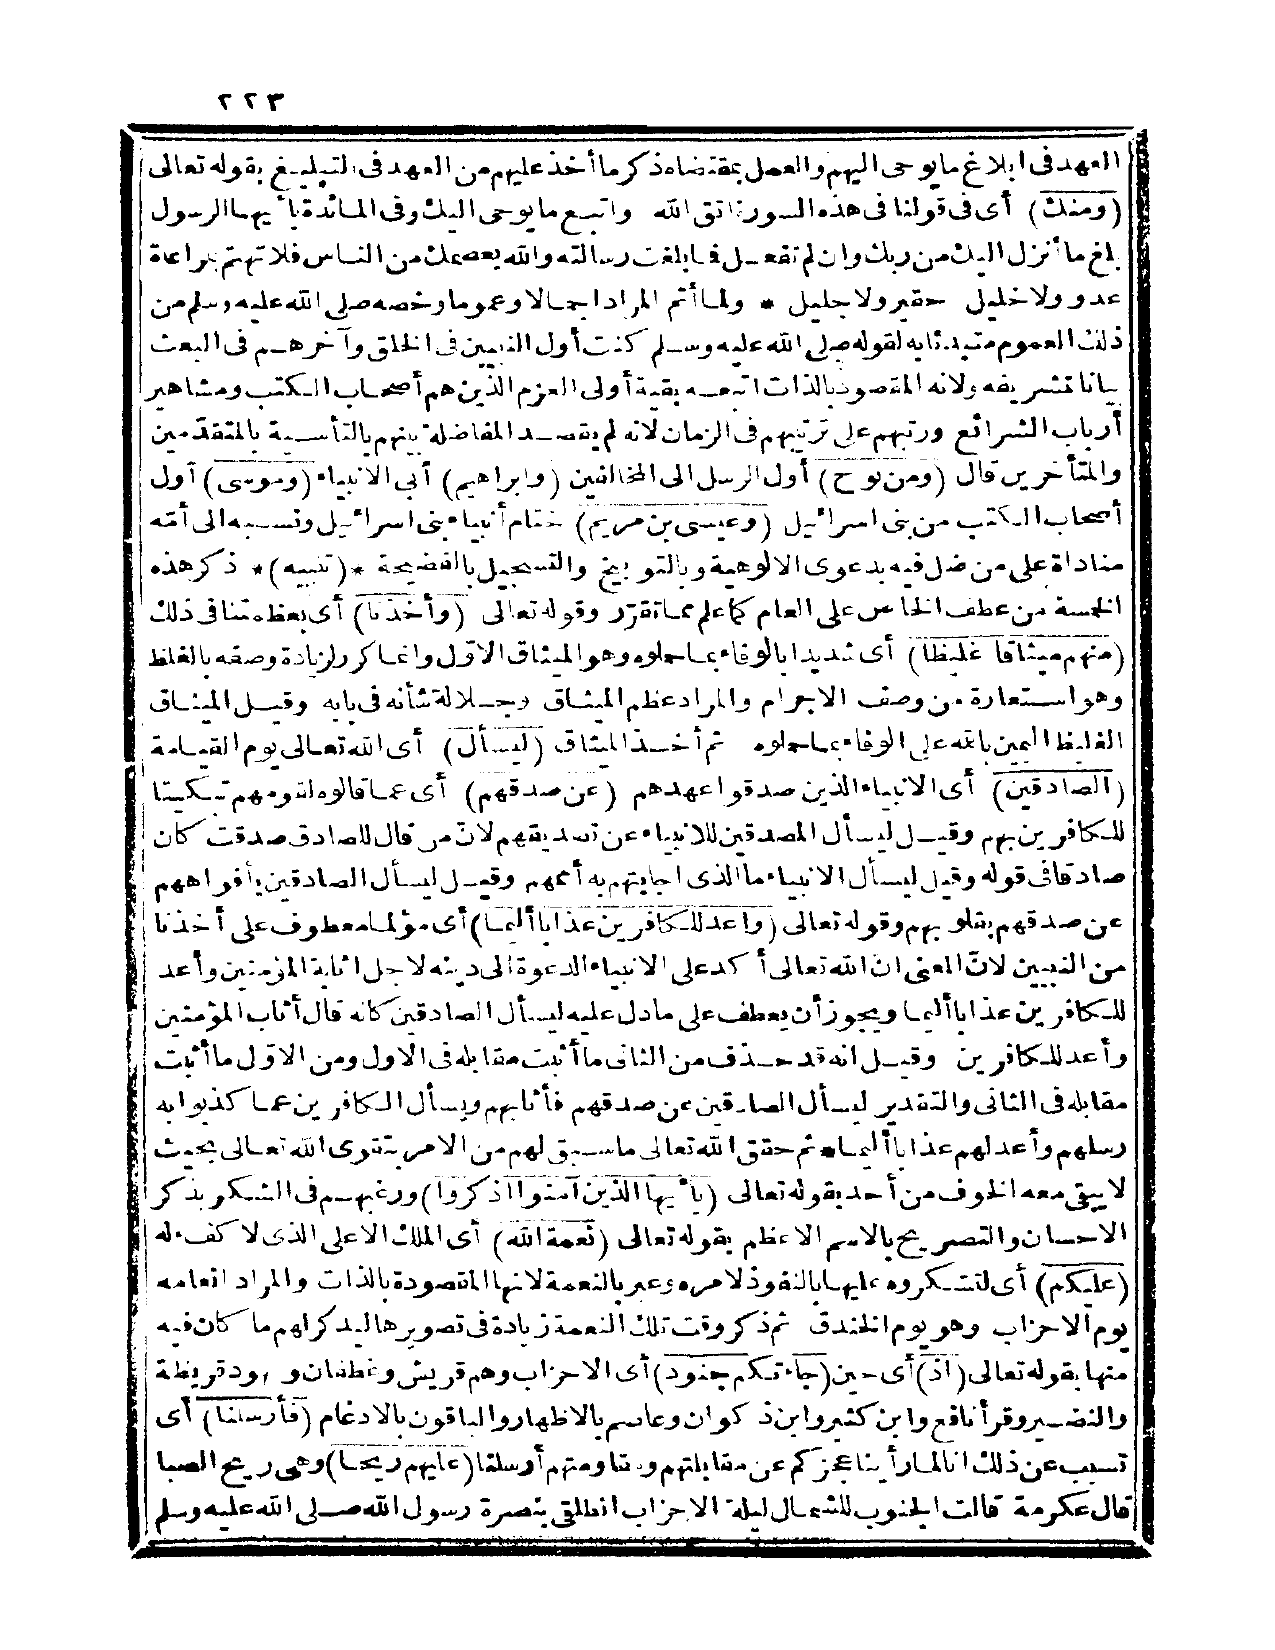 ٢٢٣
العهد فى ابلاغ مايوحى اليهم والعمل بمقتضاه ذكر ما أخذ عليهم من العهد فى التبليغ بقوله تعالى
(ومنك) أى فى قولنا فى هذه السورة اتق الله واتبع ما يوحى اليك وفى المائدة يا أيها الرسول
بلغ ما أنزل اليك من ربك وان لم تفعل فما بلغت رسالته والله يعصمك من الناس فلا تهتم بمراعاة
عدو ولا خليل حقير ولا جليل * ولما أتم المراد اجمالا وعموما وخصه صلى الله عليه وسلم من
ذلك العموم مبتدئا به لقوله صلى الله عليه وسلم كنت أول النبيين فى الخلق وآخرهم فى البعث
بيانا لتشريفه ولانه المقصود بالذات اتبعه بقية أولى العزم الذين هم أصحاب الكتب ومشاهير
أرباب الشرائع ورتبهم على ترتيبهم فى الزمان لانه لم يقصد المفاضلة بينهم بالتأسية بالمتقدمين
والمتأخرين قال (ومن نوح) أول الرسل الى المخالفين (وابراهيم) أبى الانبياء (وموسى) أول
أصحاب الكتب من بنى اسرائيل (وعيسى بن مريم) ختام أنبياء بنى اسرائيل ونسبه الى أمّه
مناداة على من ضل فيه بدعوى الالوهية وبالتوبيخ والتسجيل بالفضيحة *(تنبيه)* ذكر هذه
الخمسة من عطف الخاص على العام كما علم مما تقرّر وقوله تعالى (وأخذنا) أى بعظمتنا فى ذلك
(منهم ميثاقا غليظا) أى شديدا بالوفاء بما حملوه وهو الميثاق الاوّل وانما كرر لزيادة وصفه بالغلظ
وهو استعارة من وصف الاجرام والمراد عظم الميثاق وجلالة شأنه فى بابه وقيل الميثاق
الغليظ اليمين بالله على الوفاء بما حملوه ثم أخذ الميثاق (ليسأل) أى الله تعالى يوم القيامة
(الصادقين) أى الانبياء الذين صدقوا عهدهم (عن صدقهم) أى عما قالوه لقومهم تبكيتا
للكافرين بهم وقيل ليسأل المصدقين للانبياء عن تصديقهم لانّ من قال للصادق صدقت كان
صادقا فى قوله وقيل ليسأل الانبياء ما الذى أجابتهم به أممهم وقيل ليسأل الصادقين بأفواههم
عن صدقهم بقلوبهم وقوله تعالى (واعد للكافرين عذابا أليما) أى مؤلما معطوف على أخذنا
من النبيين لانّ المعنى ان الله تعالى أكد على الانبياء الدعوة الى دينه لاجل اثابة المؤمنين وأعد
للكافرين عذابا أليما ويجوز أن يعطف على ما دل عليه ليسأل الصادقين كانه قال أثاب المؤمنين
وأعد للكافرين وقيل انه قد حذف من الثانى ما أثبت مقابله فى الاول ومن الاوّل ما أثبت
مقابله فى الثانى والتقدير ليسأل الصادقين عن صدقهم فأثابهم ويسأل الكافرين عما كذبوا به
رسلهم وأعد لهم عذابا أليما * ثم حقق الله تعالى ما سبق لهم من الامر بتقوى الله تعالى بحيث
لا يبقى معه الخوف من أحد بقوله تعالى (يا أيها الذين آمنوا اذكروا) ورغبهم فى الشكر بذكر
الاحسان والتصريح بالاسم الاعظم بقوله تعالى (نعمة الله) أى الملك الاعلى الذى لا كفء له
(عليكم) أى لتشكروه عليها بالنفوذ لامره وعبر بالنعمة لانها المقصودة بالذات والمراد انعامه
يوم الاحزاب وهو يوم الخندق ثم ذكر وقت تلك النعمة زيادة فى تصويرها ليذكر لهم ما كان فيه
منها بقوله تعالى (اذ) أى حين (جاءتكم جنود) أى الاحزاب وهم قريش وغطفان ويهود قريظة
والنضير وقرأ نافع وابن كثير وابن ذكوان وعاصم بالاظهار والباقون بالادغام (فأرسلنا) أى
تسبب عن ذلك انا لما رأينا عجزكم عن مقابلتهم ومقاومتهم أرسلنا (عليهم ريحا) وهى ريح الصبا
قال عكرمة قالت الجنوب للشمال ليلة الاحزاب انطلقى بنصرة رسول الله صلى الله عليه وسلم